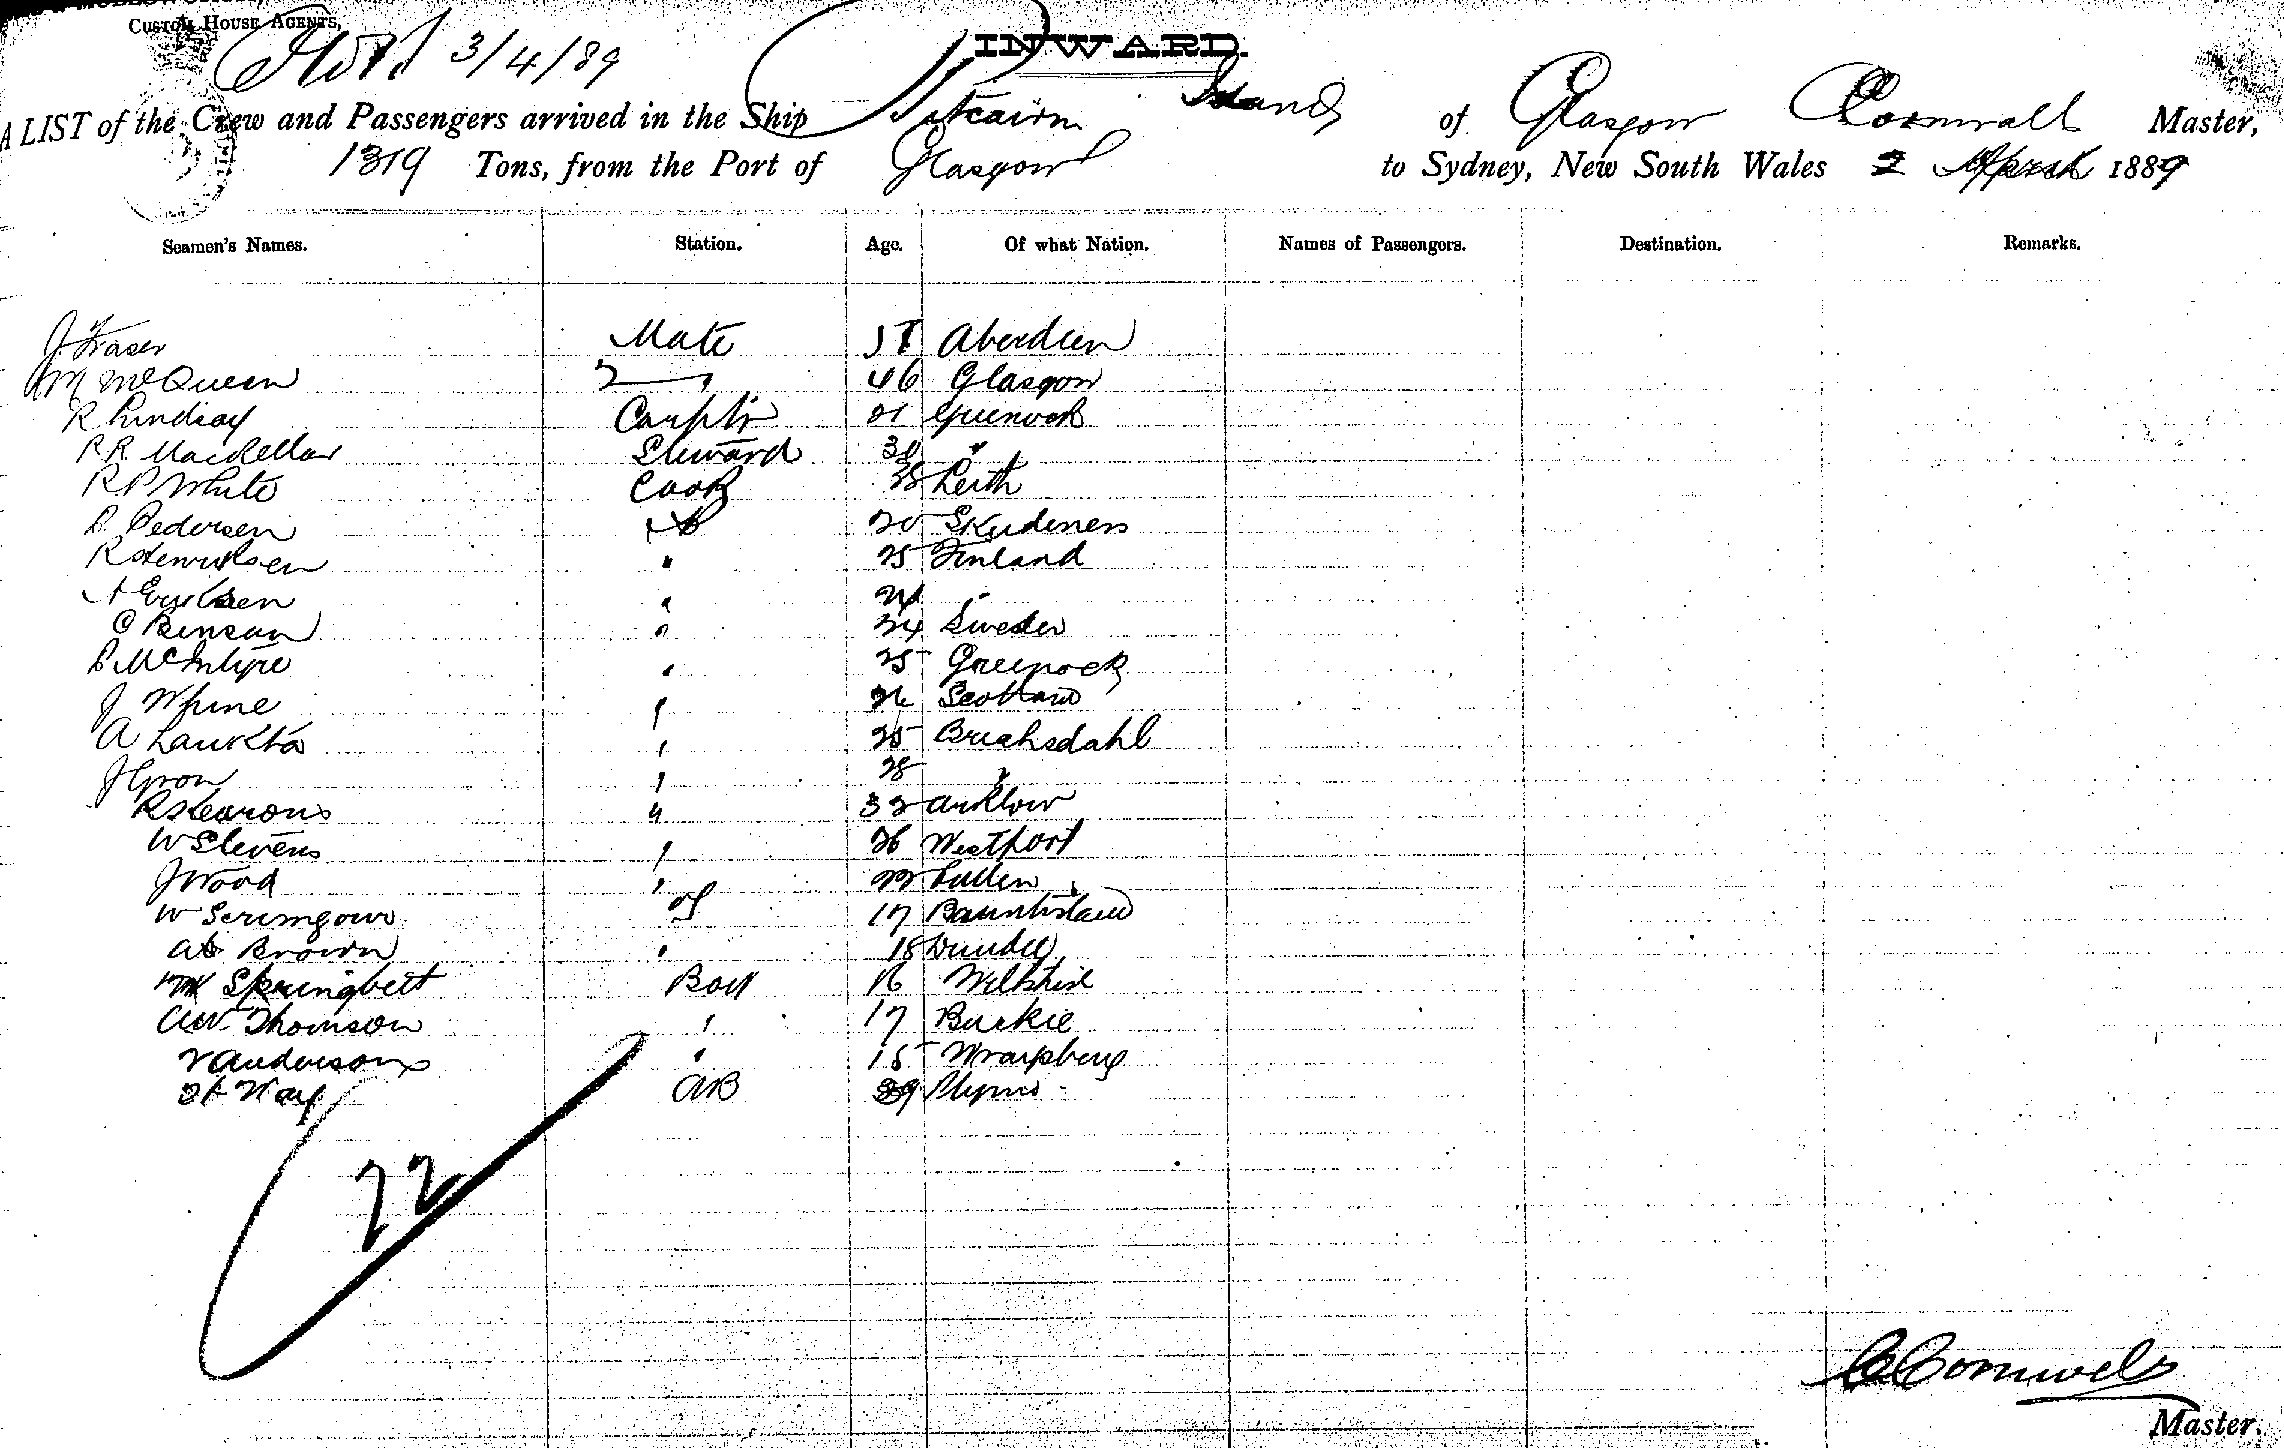 CUSTOM HOUSE AGENTS,
3/4/89 INWARD.
A LIST of the Crew and Passengers arrived in the Ship Pitcairn Island of Glasgow Cornwall Master,
1319 Tons, from the Port of Glasgow to Sydney, New South Wales 2 April 1889
Seamen's Names. Station. Age. Of what Nation. Names of Passengers. Destination. Remarks.
J. Fraser Mate Aberdeen
M McQueen 2 " 46 Glasgow
R Lindsay Carptr 21 Greenock
R R MacKellar Steward "
R P White Cook 28 Leith
Pedersen AB 20 Skudenes
R Henriksen " 25 Finland
A Eriksen " 24 "
C Benson " 24 Sweden
D McIntyre " 25 Greenock
J " 26 Scotland
A Laukta " 25
J Gron " 28 "
R Kearons " 32 Arklow
W Stevens " 26 Westport
J Wood " 22
W Scrimgour OS 17 Burntisland
Brown " 18 Dundee
Springbett Boy 16 Wiltshire
A W Thomson " 17 Buckie
Anderson " 15
Way AB 29 Plymo
22
C Cornwell
Master.